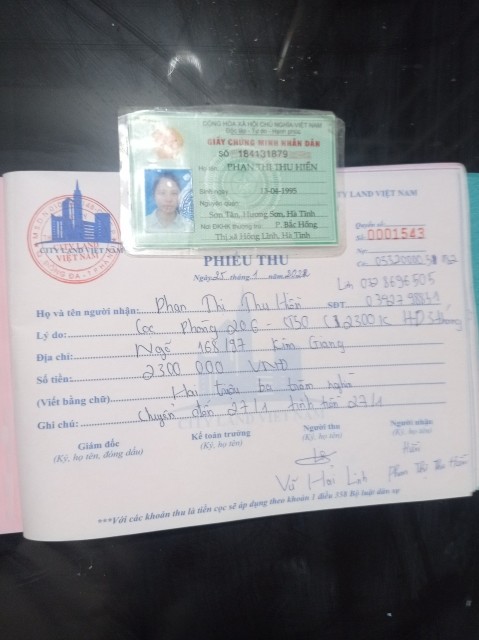 CỘNG HÒA XÃ HỘI CHỦ NGHĨA VIỆT NAM
Độc lập - Tự do - Hạnh phúc
GIẤY CHỨNG MINH NHÂN DÂN
SỐ 184131879
Họ tên: PHAN THỊ THU HIỀN
Sinh ngày: 13-04-1995
Nguyên quán:
Sơn Tân, Hương Sơn, Hà Tĩnh
Nơi ĐKHK thường trú: P. Bắc Hồng
Thị xã Hồng Lĩnh, Hà Tĩnh
CITY LAND VIỆT NAM
CITY LAND
VIỆT NAM
Quyển số:
Số 0001543
PHIẾU THU
Ngày 25 tháng 1 năm
Họ và tên người nhận: Phan Thị Thu Hiền SĐT:
Lý do: Cọc Phòng 206 - 2300K
Địa chỉ: Ngõ 168/97 Kim Giang
Số tiền: 2300 000 VNĐ
(Viết bằng chữ) Hai triệu ba trăm nghìn
Ghi chú: Chuyển đến 27/1 tính tiền 27/1
CITY LAND VIỆT NAM
Giám đốc
(Ký, họ tên, đóng dấu)
Kế toán trưởng
(Ký, họ tên)
Người thu
(Ký, họ tên)
Người nhận
(Ký, họ tên)
Hiền
Vũ Hải Linh
Phan Thị Thu Hiền
***Với các khoản thu là tiền cọc sẽ áp dụng theo khoản 1 điều 358 Bộ luật dân sự